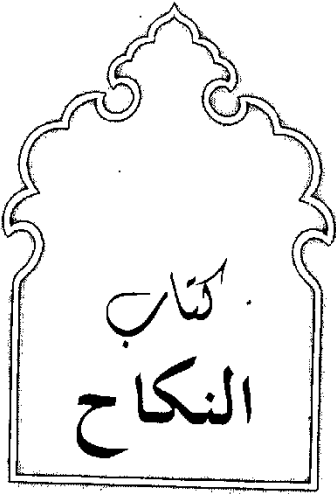 كتاب
النكاح